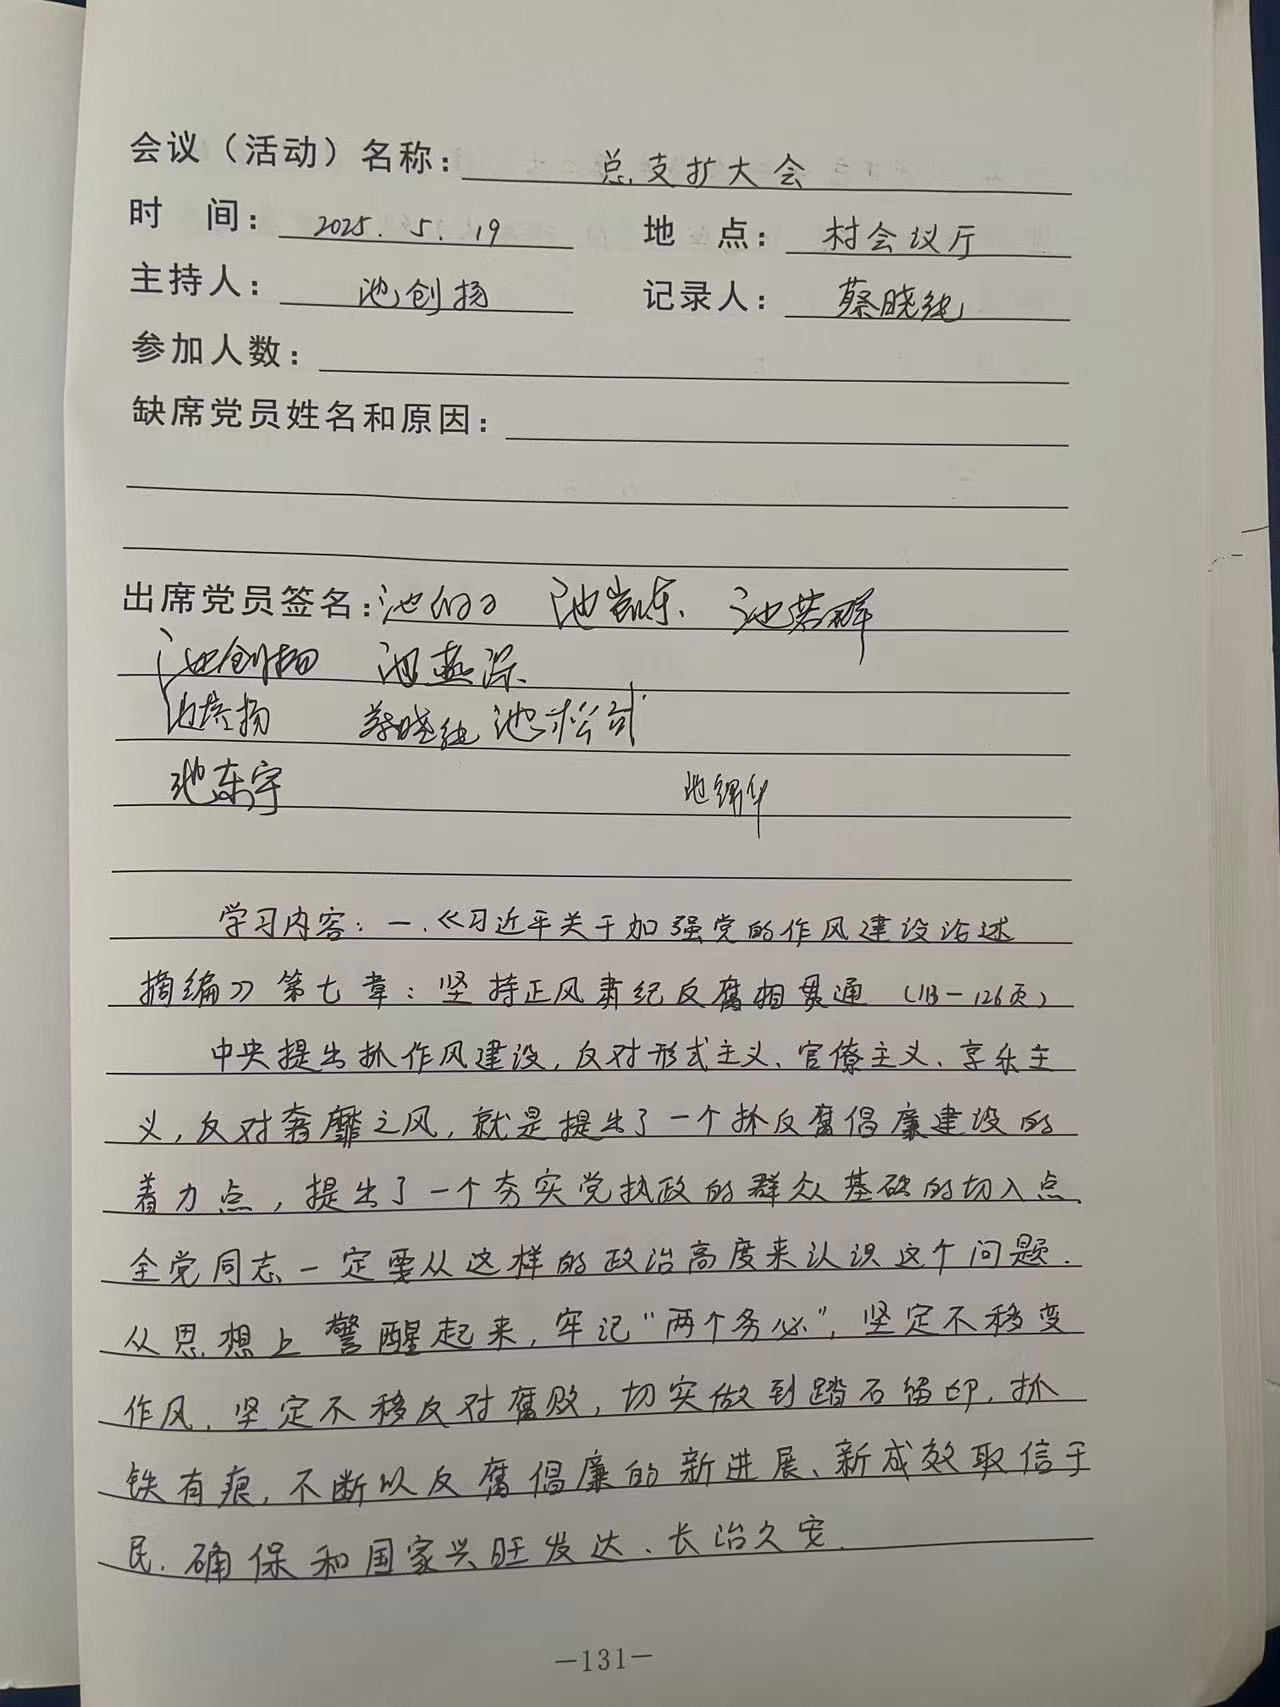 会议（活动）名称：总支扩大会
时 间：2025.5.19 地 点：村会议厅
主持人：池创扬 记录人：蔡晓纯
参加人数：
缺席党员姓名和原因：
出席党员签名：池 池凯东 池若群
池创扬 池燕深
池培扬 蔡晓纯 池松
池东宇 池锦华
学习内容：一.《习近平关于加强党的作风建设论述
摘编》第七章：坚持正风肃纪反腐相贯通（113-126页）
中央提出抓作风建设，反对形式主义、官僚主义、享乐主
义，反对奢靡之风，就是提出了一个抓反腐倡廉建设的
着力点，提出了一个夯实党执政的群众基础的切入点.
全党同志一定要从这样的政治高度来认识这个问题.
从思想上警醒起来，牢记“两个务必”，坚定不移变
作风，坚定不移反对腐败，切实做到踏石留印，抓
铁有痕，不断以反腐倡廉的新进展、新成效取信于
民.确保和国家兴旺发达、长治久安.
—131—